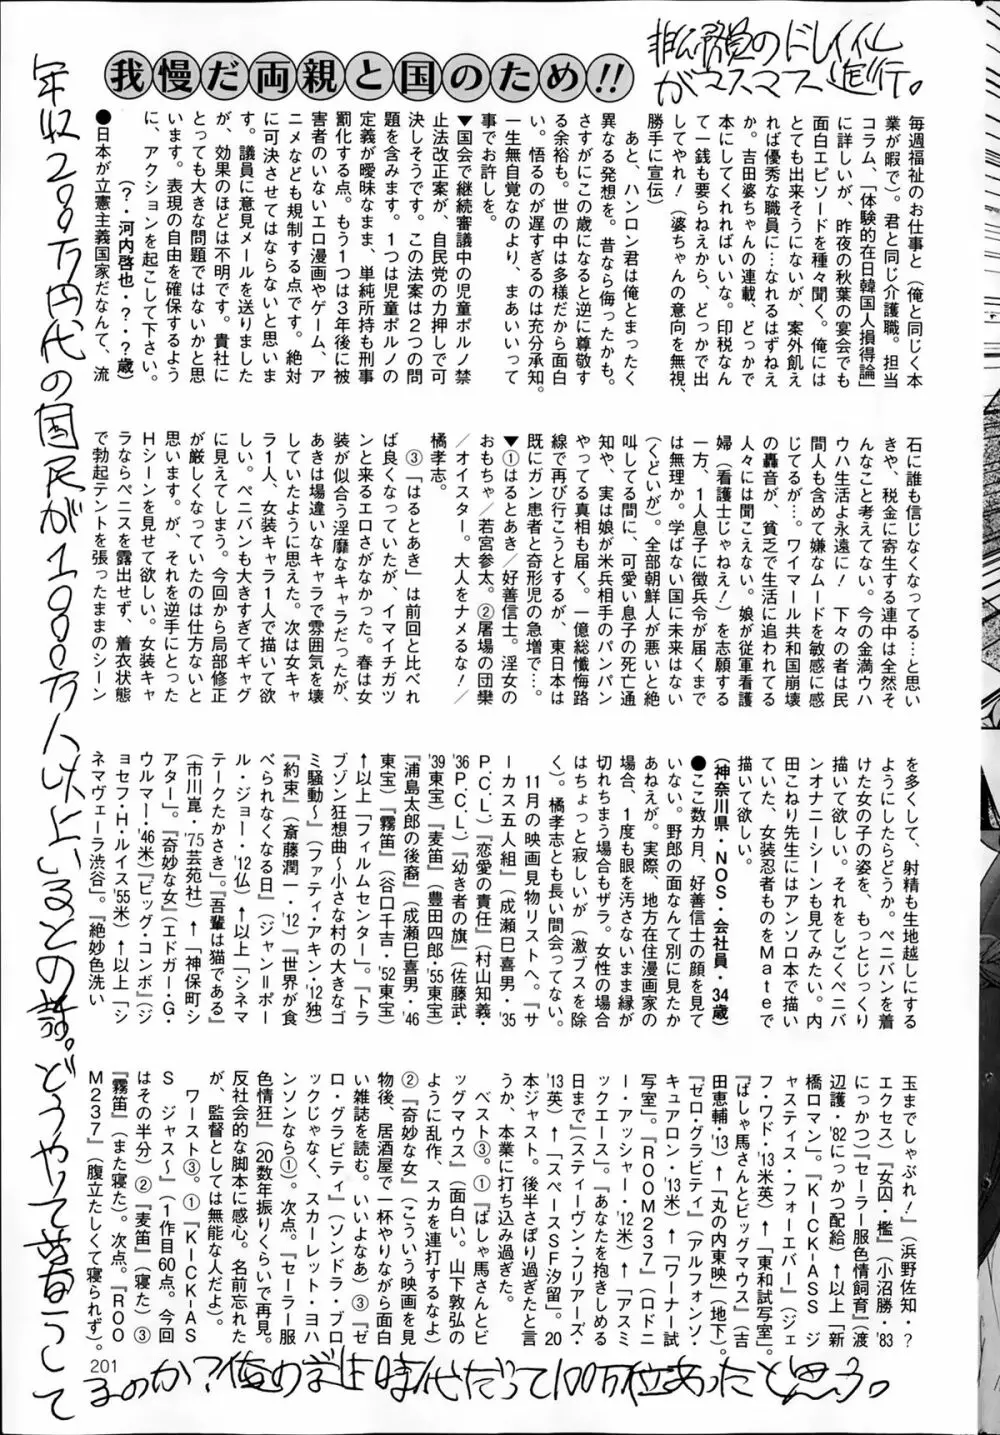 非公務員のドレイ化
がマスマス進行。
我慢だ両親と国のため!!
毎週福祉のお仕事と（俺と同じく本
業が暇で）。君と同じ介護職。担当
コラム、「体験的在日韓国人損得論」
に詳しいが、昨夜の秋葉の宴会でも
面白エピソードを種々聞く。俺には
とても出来そうにないが、案外飢え
れば優秀な職員に…なれるはずねえ
か。吉田婆ちゃんの連載、どっかで
本にしてくれればいいな。印税なん
て一銭も要らねえから、どっかで出
してやれ！（婆ちゃんの意向を無視、
勝手に宣伝）
あと、ハンロン君は俺とまったく
異なる発想を。昔なら侮ったかも。
さすがにこの歳になると逆に尊敬す
る余裕も。世の中は多様だから面白
い。悟るのが遅すぎるのは充分承知。
一生無自覚なのより、まあいいって
事でお許しを。
▼国会で継続審議中の児童ポルノ禁
止法改正案が、自民党の力押しで可
決しそうです。この法案は２つの問
題を含みます。１つは児童ポルノの
定義が曖昧なまま、単純所持も刑事
罰化する点。もう１つは３年後に被
害者のいないエロ漫画やゲーム、ア
ニメなども規制する点です。絶対
に可決させてはならないと思いま
す。議員に意見メールを送りました
が、効果のほどは不明です。貴社に
とっても大きな問題ではないかと思
います。表現の自由を確保するよう
に、アクションを起こして下さい。
（？・河内啓也・？・？歳）
●日本が立憲主義国家だなんて、流
石に誰も信じなくなってる…と思い
きや、税金に寄生する連中は全然そ
んなこと考えてない。今の金満ウハ
ウハ生活よ永遠に！ 下々の者は民
間人も含めて嫌なムードを敏感に感
じてるが…。ワイマール共和国崩壊
の轟音が、貧乏で生活に追われてる
人々には聞こえない。娘が従軍看護
婦（看護士じゃねえ！）を志願する
一方、１人息子に徴兵令が届くまで
は無理か。学ばない国に未来はない
（くどいが）。全部朝鮮人が悪いと絶
叫してる間に、可愛い息子の死亡通
知や、実は娘が米兵相手のパンパン
やってる真相も届く。一億総懺悔路
線で再び行こうとするが、東日本は
既にガン患者と奇形児の急増で…。
▼①はるとあき／好善信士。淫女の
おもちゃ／若宮参太。②屠場の団欒
／オイスター。大人をナメるな！／
橘孝志。
③「はるとあき」は前回と比べれ
ば良くなっていたが、イマイチガツ
ンと来るエロさがなかった。春は女
装が似合う淫靡なキャラだったが、
あきは場違いなキャラで雰囲気を壊
していたように思えた。次は女キャ
ラ１人、女装キャラ１人で描いて欲
しい。ペニバンも大きすぎてギャグ
に見えてしまう。今回から局部修正
が厳しくなっていたのは仕方ないと
思います。が、それを逆手にとった
Ｈシーンを見せて欲しい。女装キャ
ラならペニスを露出せず、着衣状態
で勃起テントを張ったままのシーン
を多くして、射精も生地越しにする
ようにしたらどうか。ペニバンを着
けた女の子の姿を、もっとじっくり
描いて欲しい。それをしごくペニバ
ンオナニーシーンも見てみたい。内
田こねり先生にはアンソロ本で描い
ていた、女装忍者ものをＭａｔｅで
描いて欲しい。
（神奈川県・ＮＯＳ・会社員・34歳）
●ここ数カ月、好善信士の顔を見て
いない。野郎の面なんて別に見たか
あねえが。実際、地方在住漫画家の
場合、１度も眼を汚さないまま縁が
切れちまう場合もザラ。女性の場合
はちょっと寂しいが（激ブスを除
く）。橘孝志とも長い間会ってない。
11月の映画見物リストへ。『サ
ーカス五人組』（成瀬巳喜男・'35
Ｐ.Ｃ.Ｌ.）『恋愛の責任』（村山知義・
'36Ｐ.Ｃ.Ｌ.）『幼き者の旗』（佐藤武・
'39東宝）『麦笛』（豊田四郎・'55東宝）
『浦島太郎の後裔』（成瀬巳喜男・'46
東宝）『霧笛』（谷口千吉・'52東宝）
↑以上「フィルムセンター」。『トラ
ブゾン狂想曲〜小さな村の大きなゴ
ミ騒動〜』（ファティ・アキン・'12独）
『約束』（斎藤潤一・'12）『世界が食
べられなくなる日』（ジャン＝ポー
ル・ジョー・'12仏）↑以上「シネマ
テークたかさき」。『吾輩は猫である』
（市川崑・'75芸苑社）↑「神保町シ
アター」。『奇妙な女』（エドガー・Ｇ・
ウルマー・'46米）『ビッグ・コンボ』（ジ
ョセフ・Ｈ・ルイス'55米）↑以上「シ
ネマヴェーラ渋谷」。『絶妙色洗い
玉までしゃぶれ！』（浜野佐知・？
エクセス）『女囚・檻』（小沼勝・'83
にっかつ）『セーラー服色情飼育』（渡
辺護・'82にっかつ配給）↑以上「新
橋ロマン」。『ＫＩＣＫ−ＡＳＳ ジ
ャスティス・フォーエバー』（ジェ
フ・ワド・'13米英）↑「東和試写室」。
『ばしゃ馬さんとビッグマウス』（吉
田恵輔・'13）↑「丸の内東映」（地下）。
『ゼロ・グラビティ』（アルフォンソ・
キュアロン・'13米）↑「ワーナー試
写室」。『ＲＯＯＭ２３７』（ロドニ
ー・アッシャー・'12米）↑「アスミ
ックエース」。『あなたを抱きしめる
日まで』（スティーヴン・フリアーズ・
'13英）↑「スペースＦＳ汐留」。20
本ジャスト。後半さぼり過ぎたと言
うか、本業に打ち込み過ぎた。
ベスト③。①『ばしゃ馬さんとビ
ッグマウス』（面白い。山下敦弘の
ように乱作、スカを連打するなよ）
②『奇妙な女』（こういう映画を見
物後、居酒屋で一杯やりながら面白
い雑誌を読む。いいよなあ）③『ゼ
ロ・グラビティ』（ソンドラ・ブロ
ックじゃなく、スカーレット・ヨハ
ンソンなら①）。次点。『セーラー服
色情狂』（20数年振りくらいで再見。
反社会的な脚本に感心。名前忘れた
が、監督としては無能な人だよ）。
ワースト③。①『ＫＩＣＫ−ＡＳ
Ｓ ジャス〜』（１作目60点。今回
はその半分）②『麦笛』（寝た）③
『霧笛』（また寝た）。次点。『ＲＯＯ
Ｍ２３７』（腹立たしくて寝られず）。
201
年収200万円代の国民が1000万人以上いるとの話。どうやって暮ラして
るのか？俺の学生時代だって100万位あったと思う。